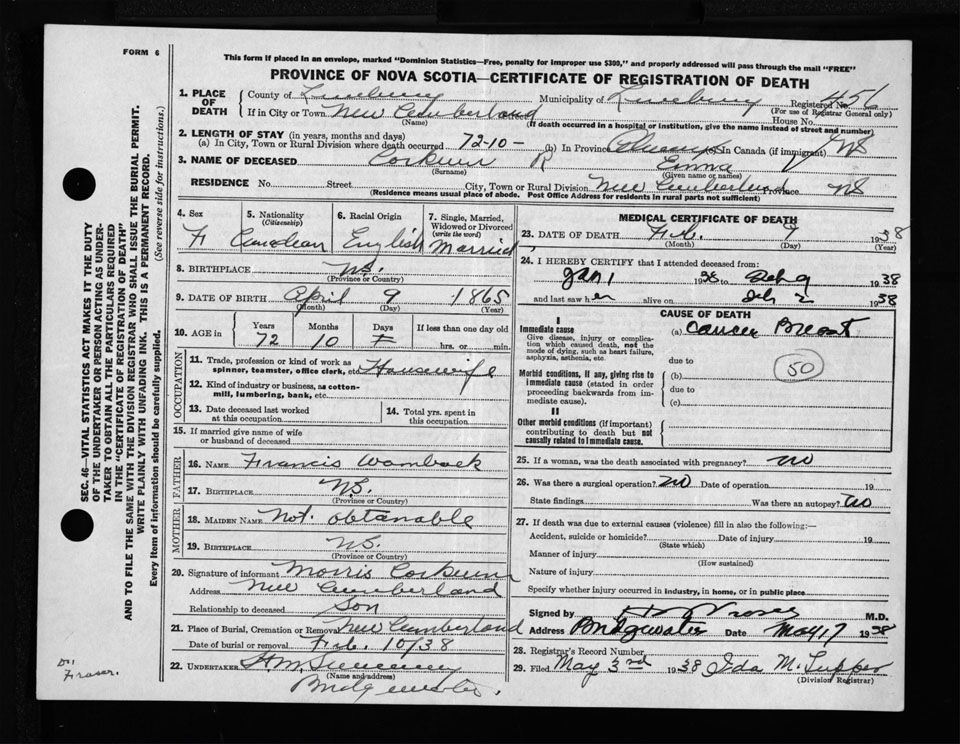 FORM 6
This form if placed in an envelope, marked "Dominion Statistics—Free, penalty for improper use $300," and properly addressed will pass through the mail "FREE"
PROVINCE OF NOVA SCOTIA—CERTIFICATE OF REGISTRATION OF DEATH
SEC. 46—VITAL STATISTICS ACT MAKES IT THE DUTY
OF THE UNDERTAKER OR PERSON ACTING AS UNDER-
TAKER TO OBTAIN ALL THE PARTICULARS REQUIRED
IN THE "CERTIFICATE OF REGISTRATION OF DEATH"
AND TO FILE THE SAME WITH THE DIVISION REGISTRAR WHO SHALL ISSUE THE BURIAL PERMIT.
WRITE PLAINLY WITH UNFADING INK. THIS IS A PERMANENT RECORD.
Every item of information should be carefully supplied. (See reverse side for instructions.)
1. PLACE OF DEATH County of Lunenburg Municipality of Lunenburg Registered No. 456
(For use of Registrar General only)
If in City or Town New Cumberland House No.
(Name) (If death occurred in a hospital or institution, give the name instead of street and number)
2. LENGTH OF STAY (in years, months and days)
(a) In City, Town or Rural Division where death occurred 72-10- (b) In Province Always (c) In Canada (if immigrant)
3. NAME OF DECEASED Corkum R Emma
(Surname) (Given name or names)
RESIDENCE No. Street City, Town or Rural Division New Cumberland Province NS
(Residence means usual place of abode. Post Office Address for residents in rural parts not sufficient)
4. Sex F
5. Nationality (Citizenship) Canadian
6. Racial Origin English
7. Single, Married, Widowed or Divorced (write the word) Married
8. BIRTHPLACE N.S.
(Province or Country)
9. DATE OF BIRTH April 9 1865
(Month) (Day) (Year)
10. AGE in Years Months Days If less than one day old
72 10 hrs. or min.
OCCUPATION
11. Trade, profession or kind of work as spinner, teamster, office clerk, etc. Housewife
12. Kind of industry or business, as cotton-mill, lumbering, bank, etc.
13. Date deceased last worked at this occupation
14. Total yrs. spent in this occupation
15. If married give name of wife or husband of deceased
FATHER
16. NAME Francis Womback
17. BIRTHPLACE N.S.
(Province or Country)
MOTHER
18. MAIDEN NAME Not obtanable
19. BIRTHPLACE N.S.
(Province or Country)
20. Signature of informant Morris Corkum
Address New Cumberland
Relationship to deceased Son
21. Place of Burial, Cremation or Removal New Cumberland
Date of burial or removal Feb. 10/38
22. UNDERTAKER
(Name and address)
Bridgewater.
Dr. Fraser.
MEDICAL CERTIFICATE OF DEATH
23. DATE OF DEATH Feb. 9 1938
(Month) (Day) (Year)
24. I HEREBY CERTIFY that I attended deceased from:
Jan 1 1938 to Feb 9 1938
and last saw her alive on Feb 2 1938
CAUSE OF DEATH
I
Immediate cause (a) Cancer Breast
Give disease, injury or complication which caused death, not the mode of dying, such as heart failure, asphyxia, asthenia, etc.
due to
50
Morbid conditions, if any, giving rise to immediate cause (stated in order proceeding backwards from immediate cause).
(b)
due to
(c)
II
Other morbid conditions (if important) contributing to death but not causally related to immediate cause.
25. If a woman, was the death associated with pregnancy? no
26. Was there a surgical operation? no Date of operation 19
State findings Was there an autopsy? no
27. If death was due to external causes (violence) fill in also the following:—
Accident, suicide or homicide? Date of injury 19
(State which)
Manner of injury
(How sustained)
Nature of injury
Specify whether injury occurred in industry, in home, or in public place
Signed by M.D.
Address Bridgewater Date May 17 1938
28. Registrar's Record Number
29. Filed May 3rd 1938 Ida M. Tupper
(Division Registrar)